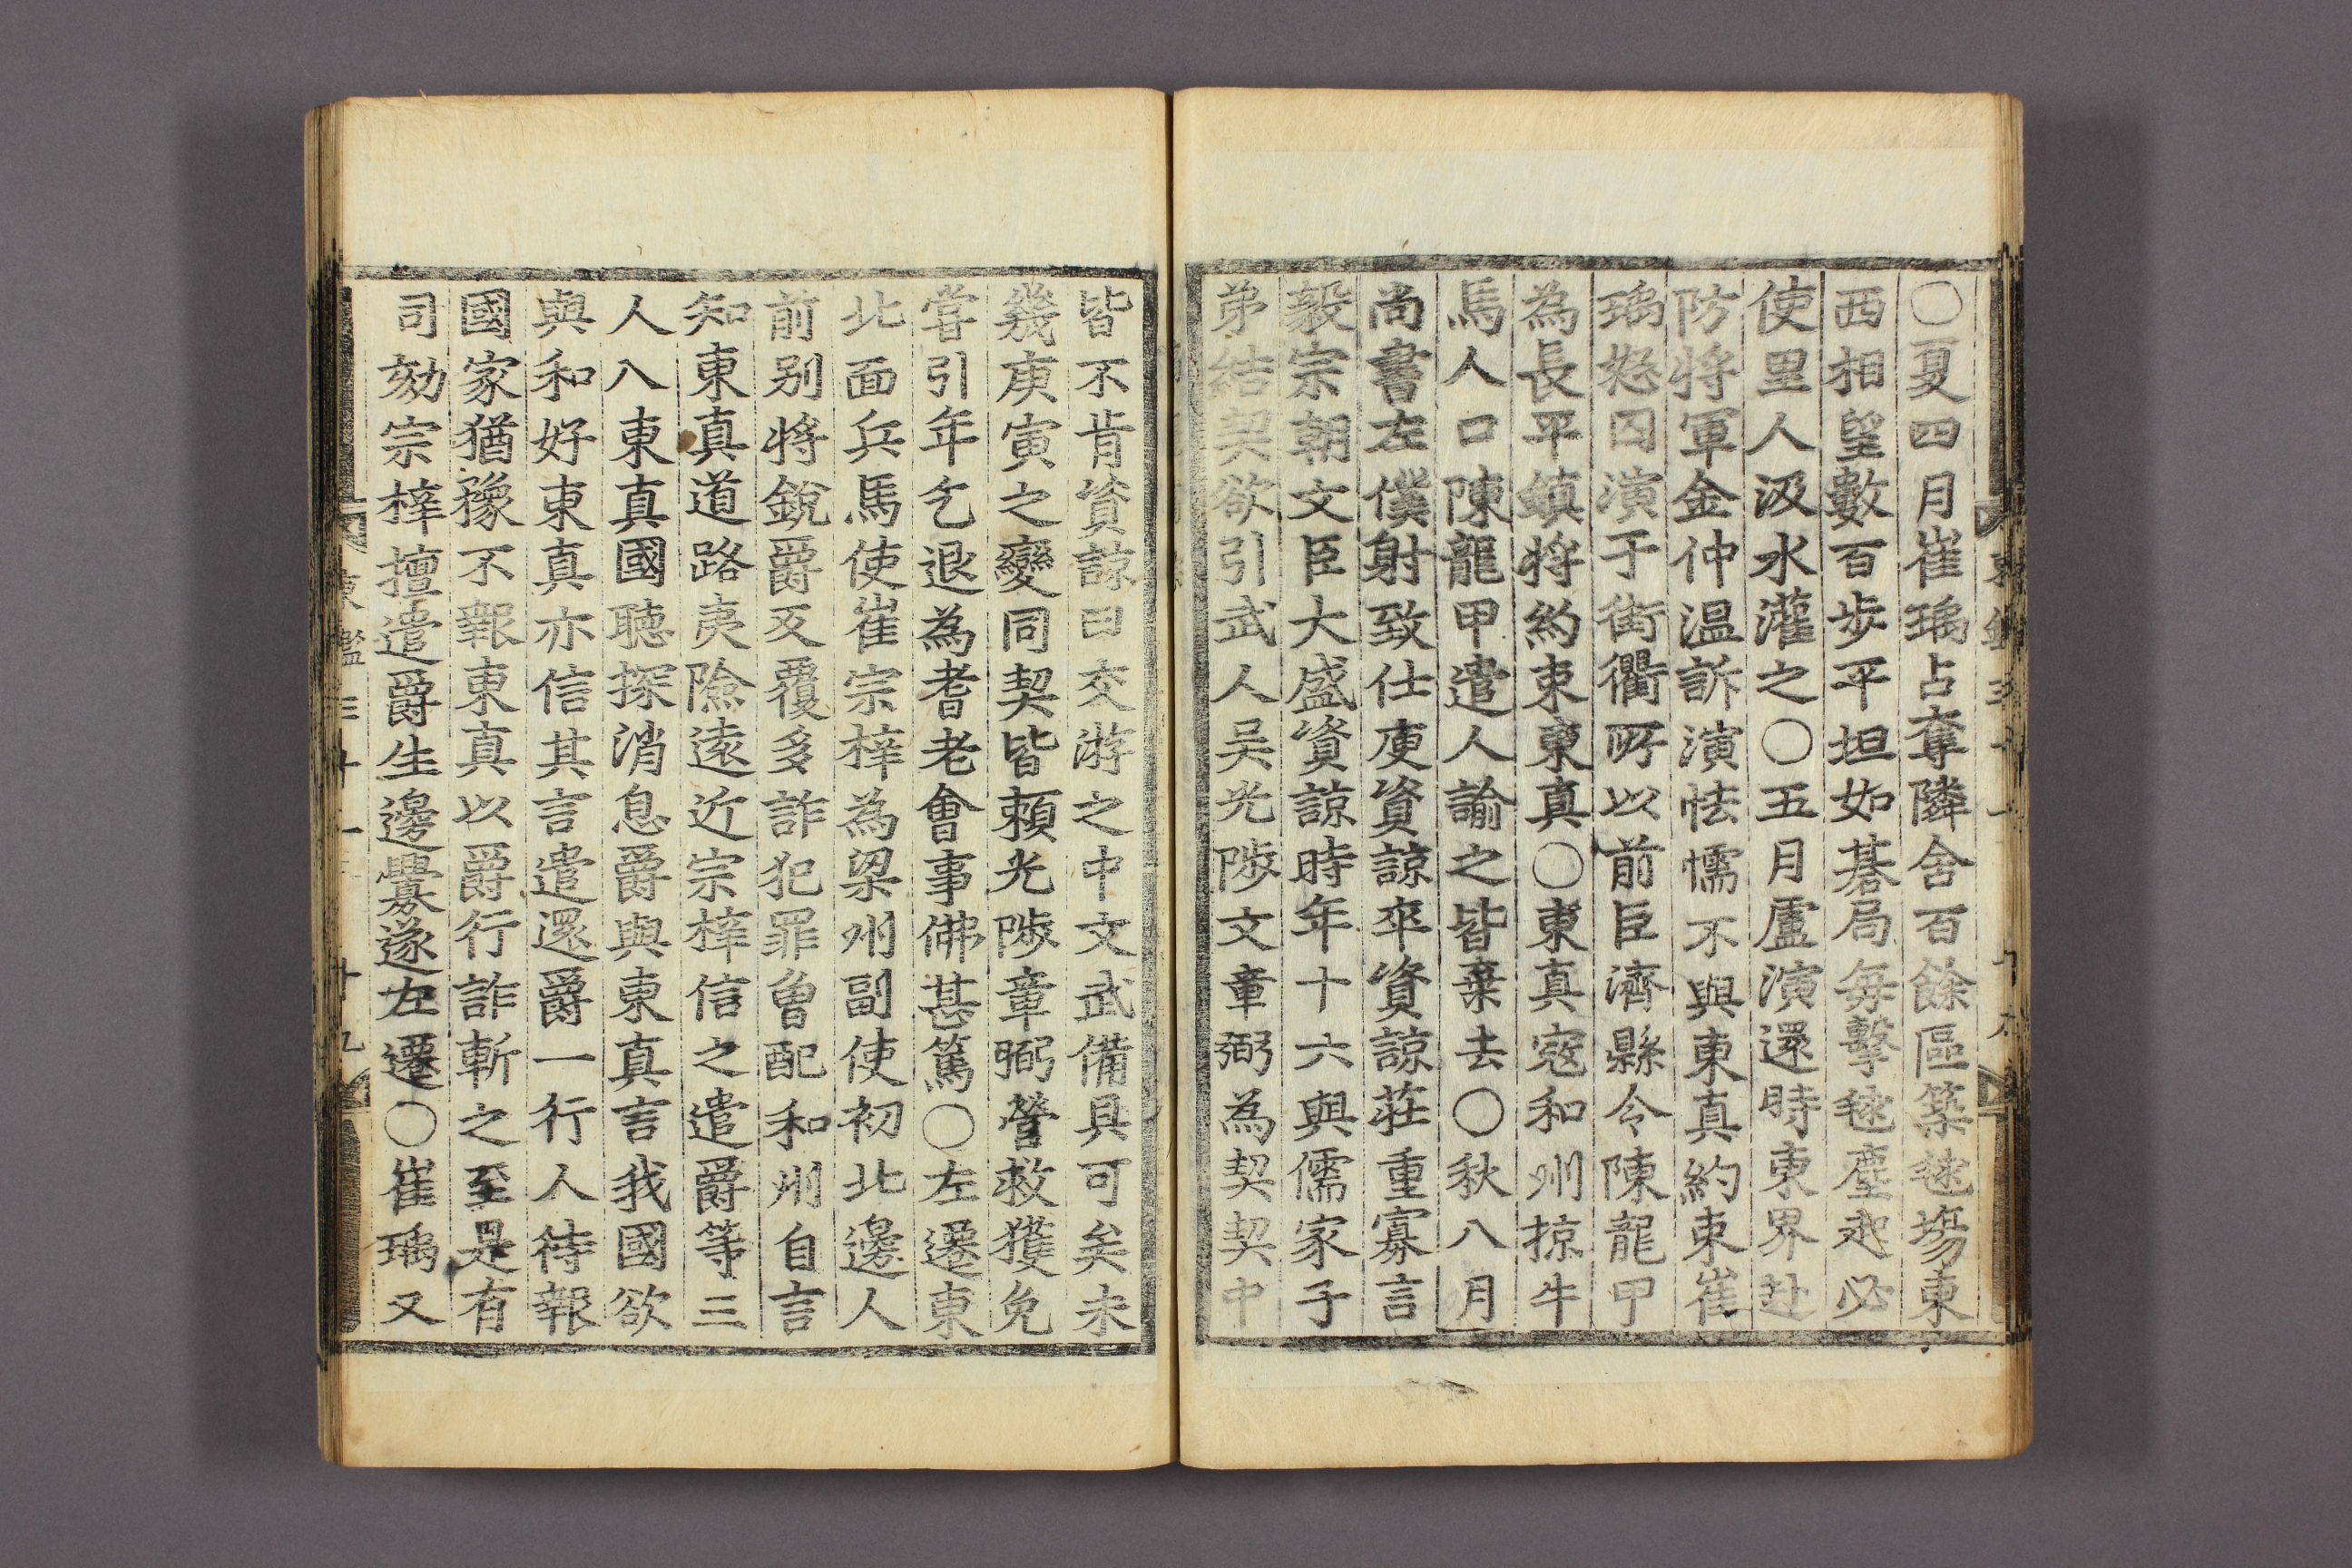 ○夏四月崔瑀占奪隣舍百餘區築毬場東
西相望數百步平坦如碁局每擊毬塵起必
使里人汲水灌之○五月盧演還時東界赴
防将軍金仲温訴演怯懦不與東真約束崔
瑀怒囚演于街衢所以前臣濟縣令陳龍甲
為長平鎮将約束東真○東真寇和州掠牛
馬人口陳龍甲遣人諭之皆棄去○秋八月
尚書左僕射致仕庾資諒卒資諒莊重寡言
毅宗朝文臣大盛資諒時年十六與儒家子
弟結契欲引武人吴光陟文章弼為契契中
皆不肯資諒曰交游之中文武備具可矣未
幾庚寅之變同契皆賴光陟章弼營救獲免
嘗引年乞退為耆老會事佛甚篤○左遷東
北面兵馬使崔宗梓為梁州副使初北邊人
前别将銳爵反覆多詐犯罪曾配和州自言
知東真道路夷險遠近宗梓信之遣爵等三
人入東真國聽探消息爵與東真言我國欲
與和好東真亦信其言遣還爵一行人待報
國家猶豫不報東真以爵行詐斬之至是有
司劾宗梓擅遣爵生邊釁遂左遷○崔瑀又